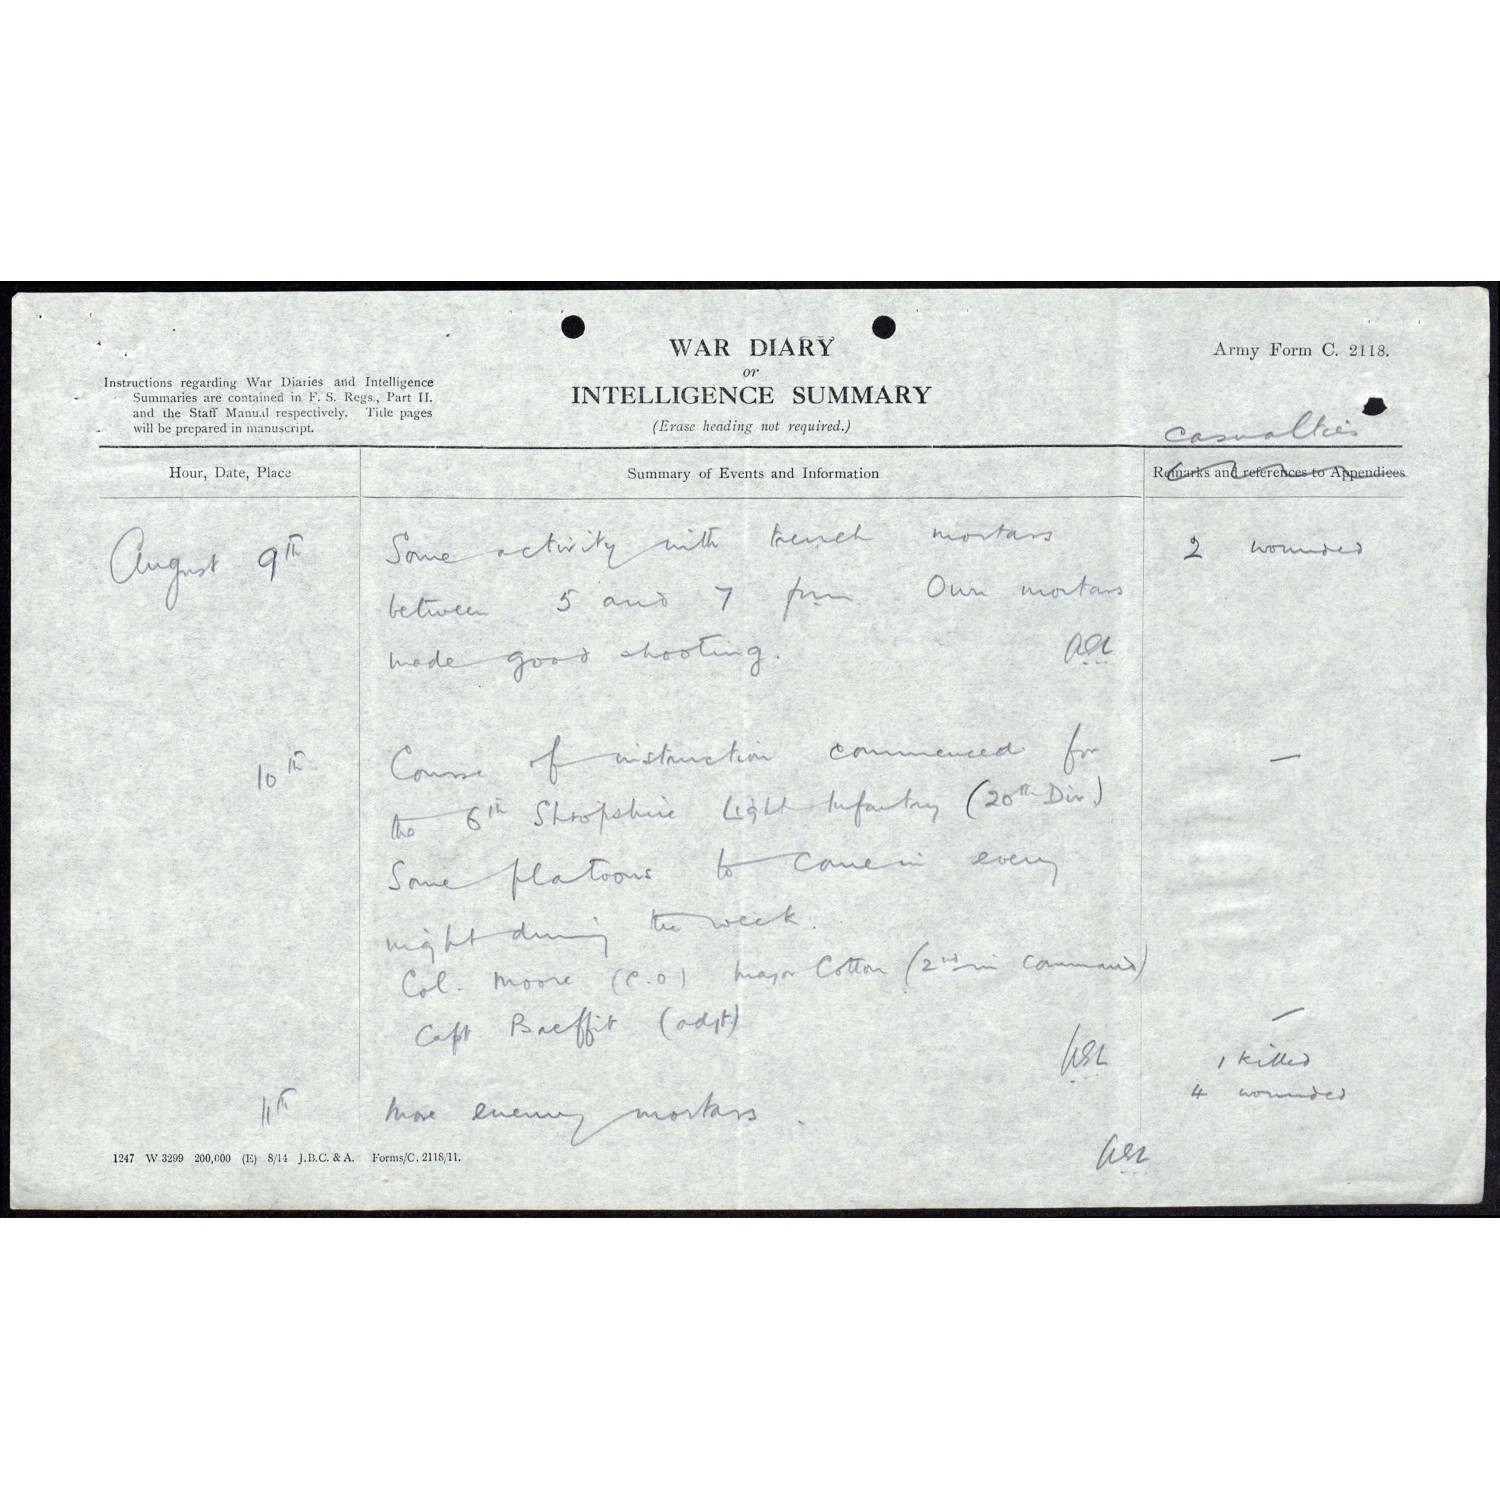 WAR DIARY
or
INTELLIGENCE SUMMARY
(Erase heading not required.)
Army Form C. 2118.
Instructions regarding War Diaries and Intelligence
Summaries are contained in F. S. Regs., Part II.
and the Staff Manual respectively. Title pages
will be prepared in manuscript.
casualties
Hour, Date, Place
Summary of Events and Information
Remarks and references to Appendices
August 9th
Some activity with trench mortars
2 wounded
between 5 and 7 pm. Our mortars
made good shooting.
10th
Course of instruction commenced for
—
the 6th Shropshire Light Infantry (20th Div.)
Some platoons to come in every
night during the week.
Col. Moore (C.O) Major Cotton (2nd in command)
Capt (adjt)
—
1 killed
4 wounded
11th
More enemy mortars.
1247 W 3299 200,000 (E) 8/14 J.B.C. & A. Forms/C. 2118/11.